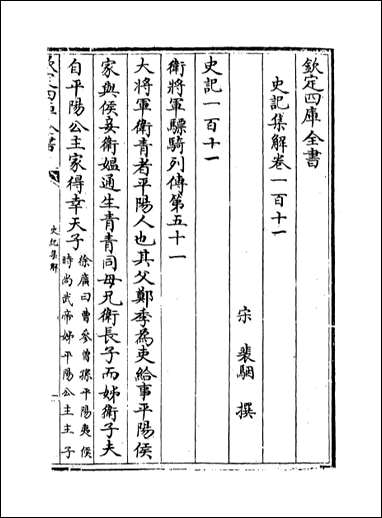 欽定四庫全書
史記集解卷一百十一
宋 裴駰 撰
史記一百十一
衛將軍驃騎列傳第五十一
大將軍衛青者平陽人也其父鄭季為吏給事平陽侯
家與侯妾衛媼通生青青同母兄衛長子而姊衛子夫
自平陽公主家得幸天子
徐廣曰曹參曽孫平陽夷侯
時尚武帝姊平陽公主主子
史記集解
一